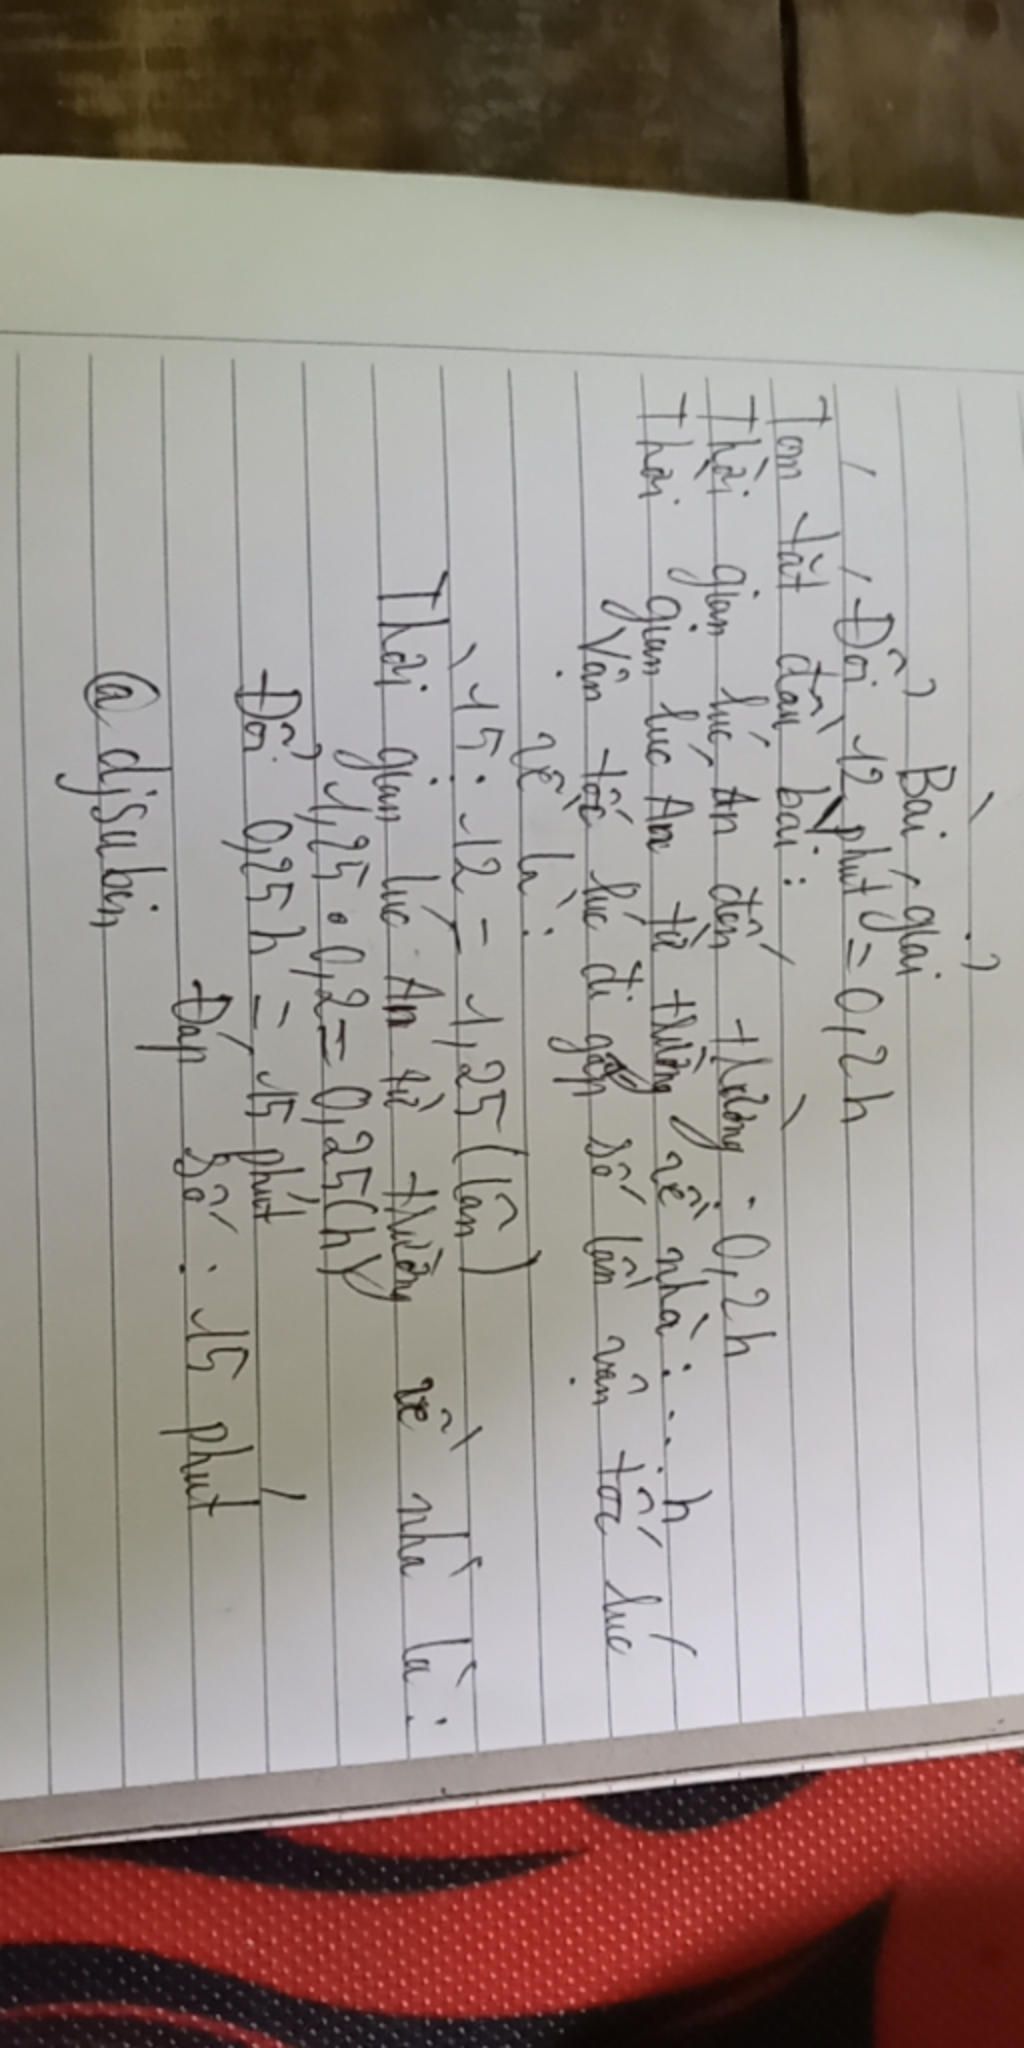 Bài giải
Đổi 12 phút = 0,2h
Tóm tắt đầu bài:
Thời gian lúc An đến trường: 0,2h
Thời gian lúc An từ trường về nhà: ... h
Vận tốc lúc đi gấp số lần vận tốc lúc
về là:
15 : 12 = 1,25 (lần)
Thời gian lúc An từ trường về nhà là:
1,25 . 0,2 = 0,25(h)
Đổi 0,25h = 15 phút
Đáp số: 15 phút
@djsuben